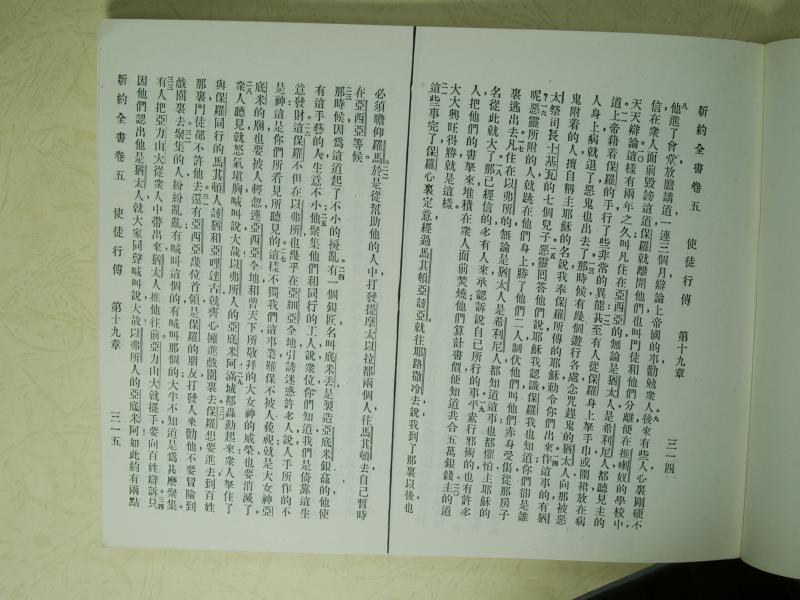 新約全書卷五　使徒行傳　第十九章　三一四
他進了會堂放膽講道一連三個月辯論上帝國的事勸勉衆人後來有些人心裏剛硬不
信在衆人面前毀謗這道保羅就離開他們也叫門徒和他們分離便在推喇奴的學校中
天天辯論這樣有兩年之久叫凡住在亞西亞的無論是猶太人是希利尼人都聽見主的
道上帝藉着保羅的手行了些非常的異能甚至有人從保羅身上拏手巾或圍裙放在病
人身上病就退了惡鬼也出去了那時候有幾個遊行各處念咒趕鬼的猶太人向那被惡
鬼附着的人擅自稱主耶穌的名說我奉保羅所傳的耶穌勒令你們出來作這事的有猶
太祭司長士基瓦的七個兒子惡靈回答他們說耶穌我認識保羅我也知道你們卻是誰
呢惡靈所附的人就跳在他們身上勝了他們二人制伏他們叫他們赤身受傷從那房子
裏逃出去凡住在以弗所的無論是猶太人是希利尼人都知道這事也都懼怕主耶穌的
名從此就大了那已經信的多有人來承認訴說自己所行的事平素行邪術的也有許多
人把他們的書拏來堆積在衆人面前焚燒他們算計書價便知道共合五萬銀錢主的道
大大興旺得勝就是這樣
這些事完了保羅心裏定意經過馬其頓亞該亞就往耶路撒冷去說我到了那裏以後也
必須瞻仰羅馬於是從幫助他的人中打發提摩太以拉都兩個人往馬其頓去自己暫時
在亞西亞等候
那時候因爲這道起了不小的擾亂有一個銀匠名叫底米丟是製造亞底米銀龕的他使
有這手藝的人生意不小他聚集他們和同行的工人說衆位你們知道我們是倚靠這生
意發財這保羅不但在以弗所也幾乎在亞西亞全地引誘迷惑許多人說人手所作的不
是神這是你們所看見所聽見的這樣不獨我們這事業難保不被人藐視就是大女神亞
底米的廟也要被人輕忽連亞西亞全地和普天下所敬拜的大女神的威榮也要消滅了
衆人聽見就怒氣塡胸喊叫說大哉以弗所人的亞底米阿滿城都轟動起來衆人拏住了
與保羅同行的馬其頓人該猶和亞哩達古就齊心擁進戲園裏去保羅想要進去到百姓
那裏門徒都不許他去還有亞西亞幾位首領是保羅的朋友打發人來勸他不要冒險到
戲園裏去聚集的人紛紛亂亂有喊叫這個的有喊叫那個的大半不知道是爲甚麼聚集
有人把亞力山大從衆人中帶出來猶太人推他往前亞力山大就擺手要向百姓辯訴只
因他們認出他是猶太人就大家同聲喊叫說大哉以弗所人的亞底米阿如此約有兩點
新約全書卷五　使徒行傳　第十九章　三一五